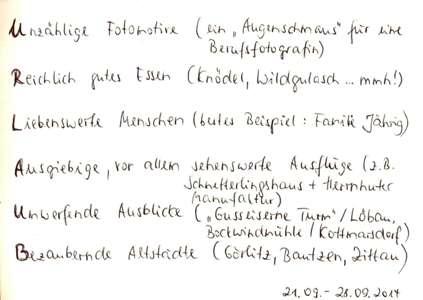 Unzählige Fotomotive (ein „Augenschmaus" für eine
Berufsfotografin)
Reichlich gutes Essen (Knödel, Wildgulasch ... mmh!)
Liebenswerte Menschen (bestes Beispiel: Familie Jährig)
Ausgiebige, vor allem sehenswerte Ausflüge (z.B.
Schmetterlingshaus + Herrnhuter
Manufaktur)
Umwerfende Ausblicke („Gusseiserne Turm"/Löbau,
Bockwindmühle/Kottmarsdorf)
Bezaubernde Altstädte (Görlitz, Bautzen, Zittau)
21.09. - 28.09.2014